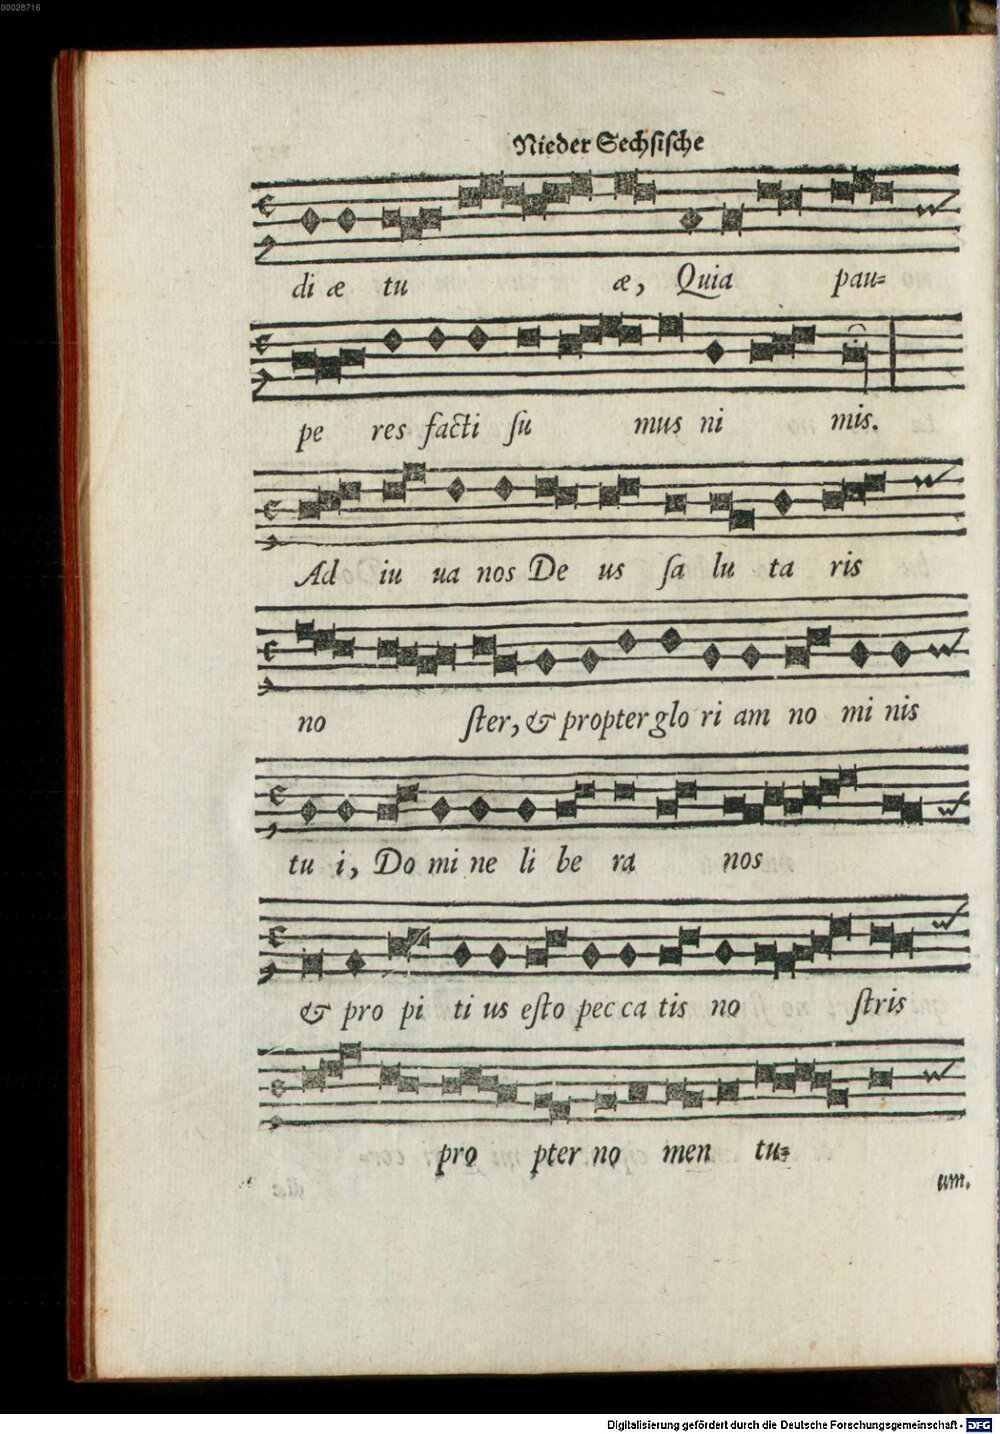 00028716
Nieder Sechsische
di æ tu æ, Quia pau⸗
pe res facti ſu mus ni mis.
Ad iu ua nos De us ſa lu ta ris
no ſter, & propter glo ri am no mi nis
tu i, Do mi ne li be ra nos
& pro pi ti us eſto pec ca tis no ſtris
pro pter no men tu⸗
um.
Digitalisierung gefördert durch die Deutsche Forschungsgemeinschaft - DFG